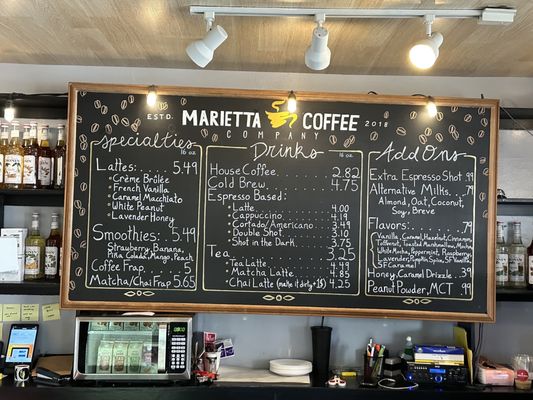 ESTD. MARIETTA COFFEE 2018
COMPANY
Specialties
16 oz
Lattes: 5.49
Crème Brûlée
French Vanilla
Caramel Macchiato
White Peanut
Lavender Honey
Smoothies: 5.49
Strawberry, Banana,
Piña Colada, Mango, Peach
Coffee Frap. 5
Matcha/Chai Frap 5.65
Drinks
16 oz
House Coffee 2.82
Cold Brew 4.75
Espresso Based:
Latte 4.00
Cappuccino 4.19
Cortado/Americano 3.49
Double Shot 3.10
Shot in the Dark 3.75
Tea 3.25
Tea Latte 4.49
Matcha Latte 4.85
Chai Latte (make it dirty +$1) 4.25
Add Ons
Extra Espresso Shot .99
Alternative Milks .79
Almond, Oat, Coconut,
Soy, Breve
Flavors .79
Vanilla, Caramel, Hazelnut, Cinnamon,
Toffeenut, Toasted Marshmallow, Mocha,
White Mocha, Peppermint, Raspberry,
Lavender, SF Vanilla,
SF Caramel
Honey, Caramel Drizzle .39
Peanut Powder, MCT .99